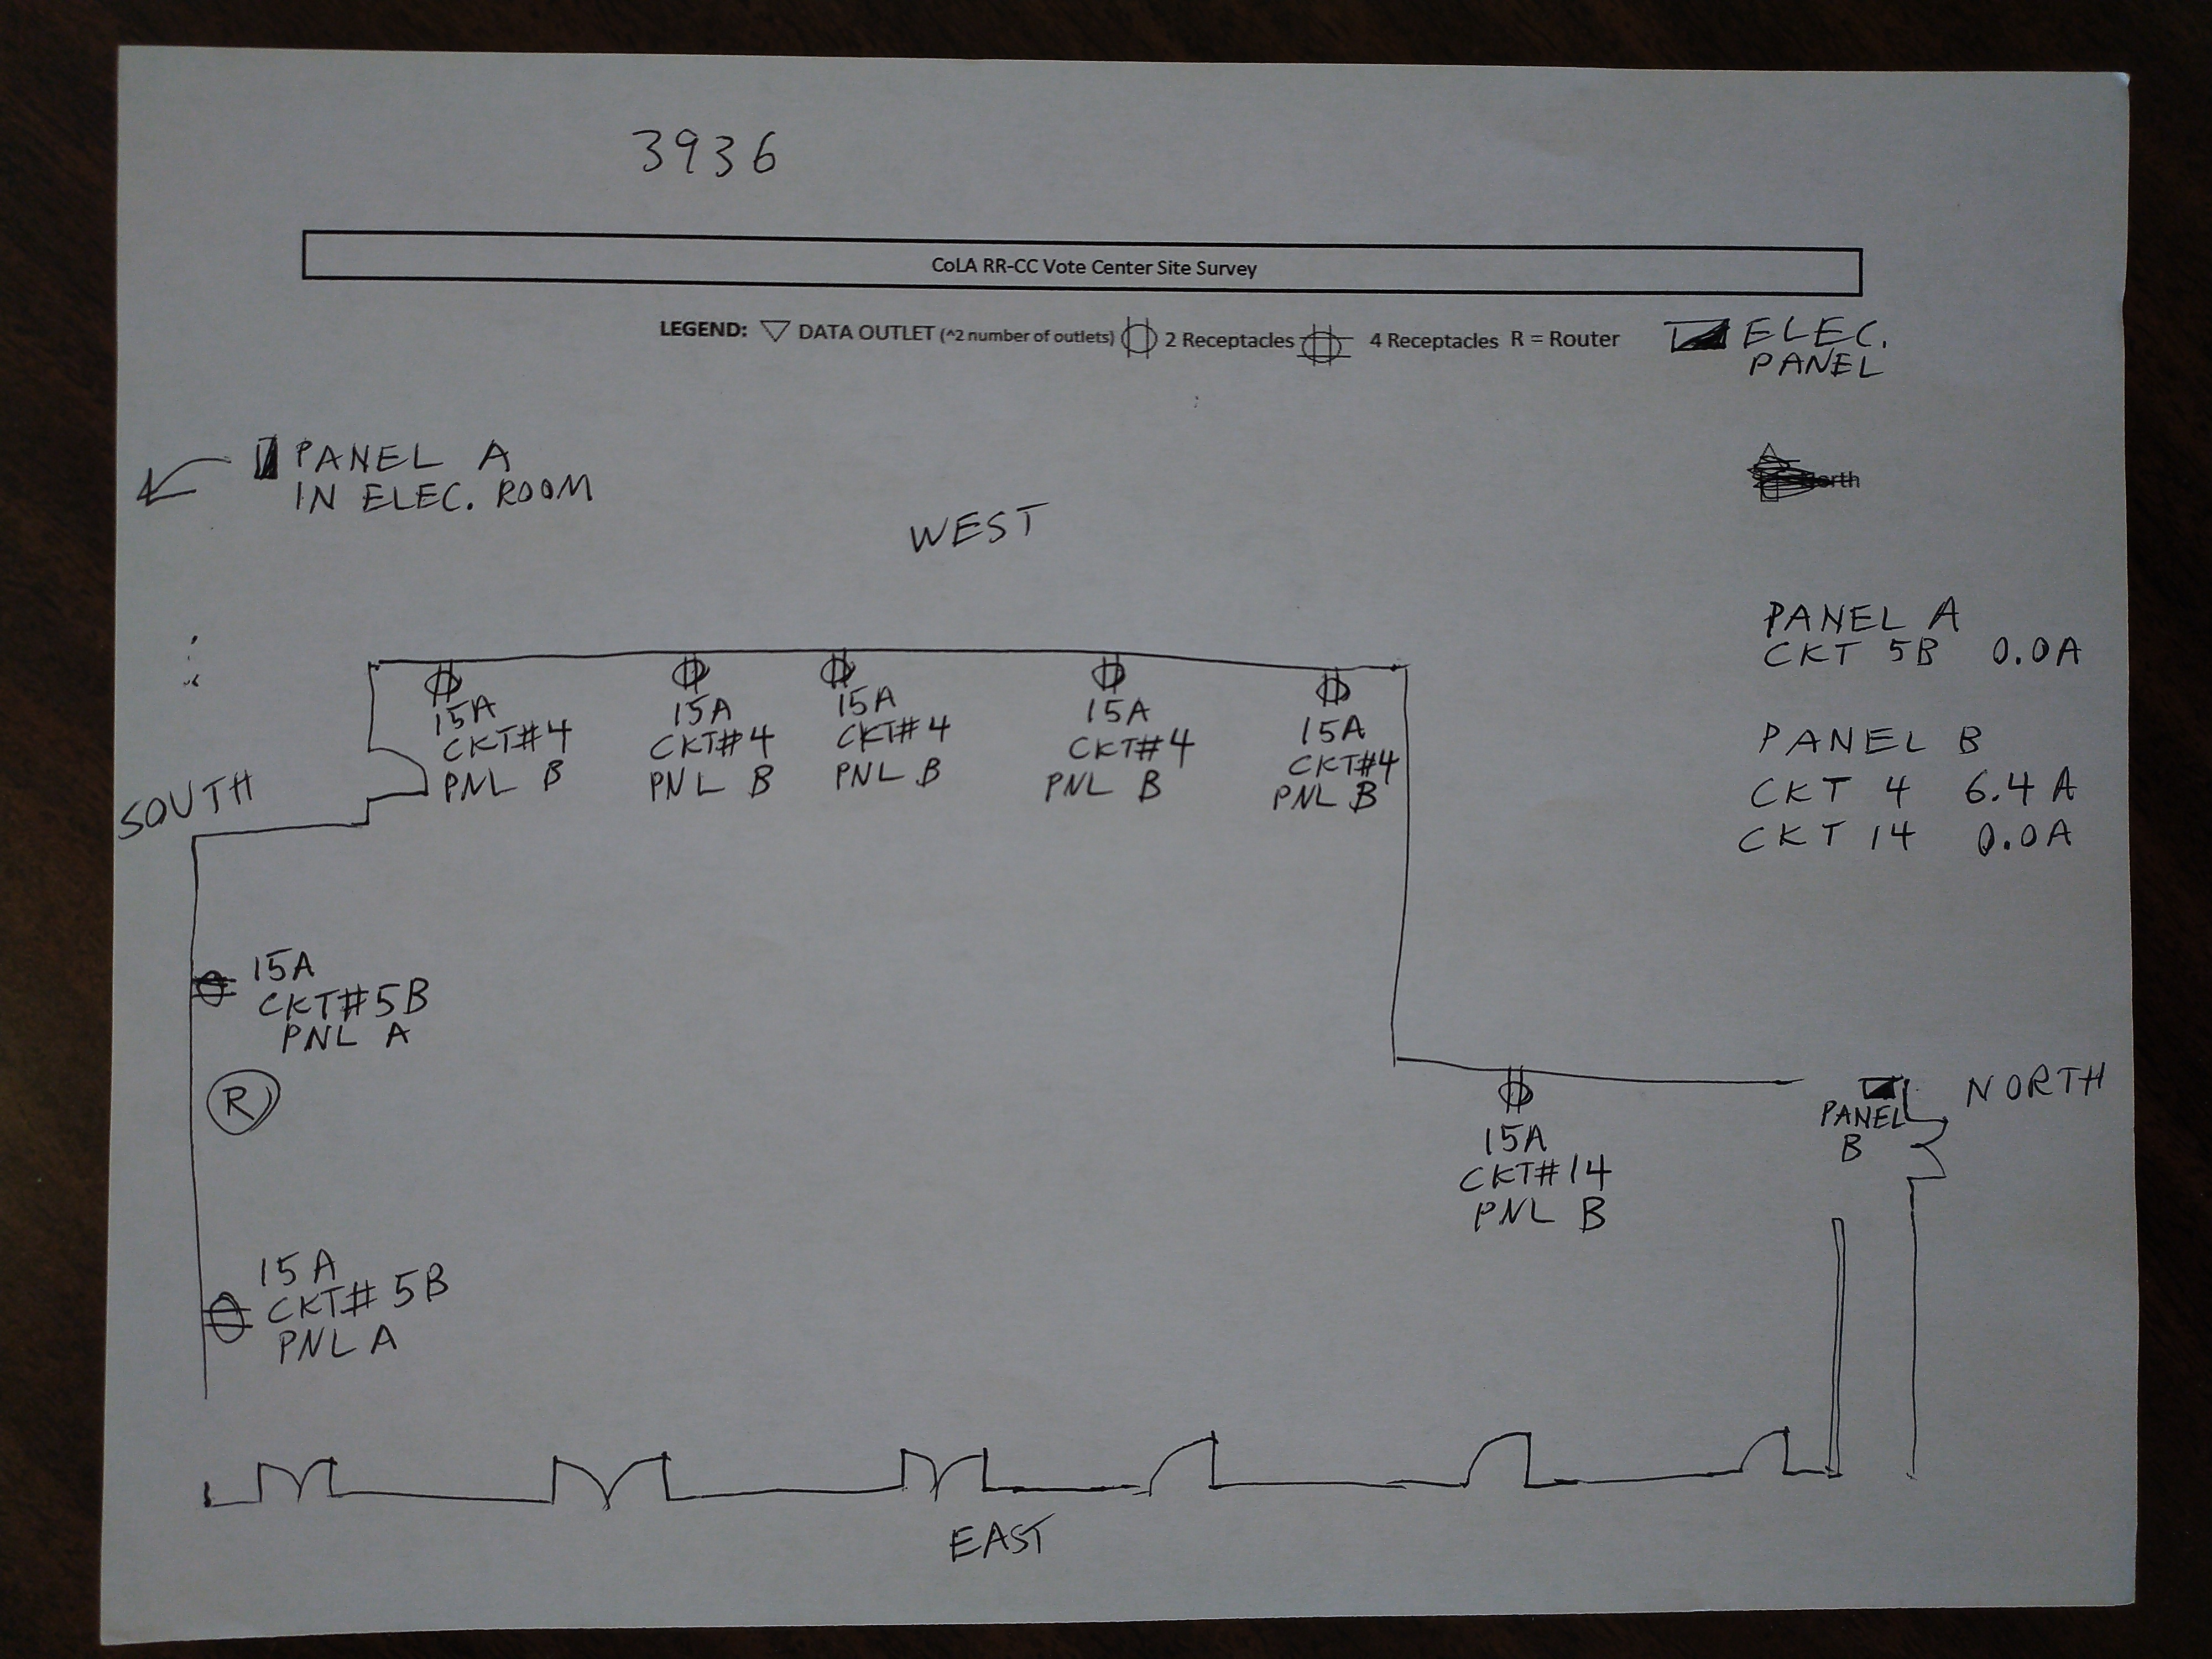 3936
CoLA RR-CC Vote Center Site Survey
LEGEND: DATA OUTLET (^2 number of outlets) 2 Receptacles 4 Receptacles R = Router
ELEC.
PANEL
PANEL A
IN ELEC. ROOM
WEST
PANEL A
CKT 5B 0.0A
PANEL B
CKT 4 6.4A
CKT 14 0.0A
15A
CKT#4
PNL B
15A
CKT#4
PNL B
15A
CKT#4
PNL B
15A
CKT#4
PNL B
15A
CKT#4
PNL B
SOUTH
15A
CKT#5B
PNL A
R
NORTH
PANEL
B
15A
CKT#14
PNL B
15A
CKT#5B
PNL A
EAST